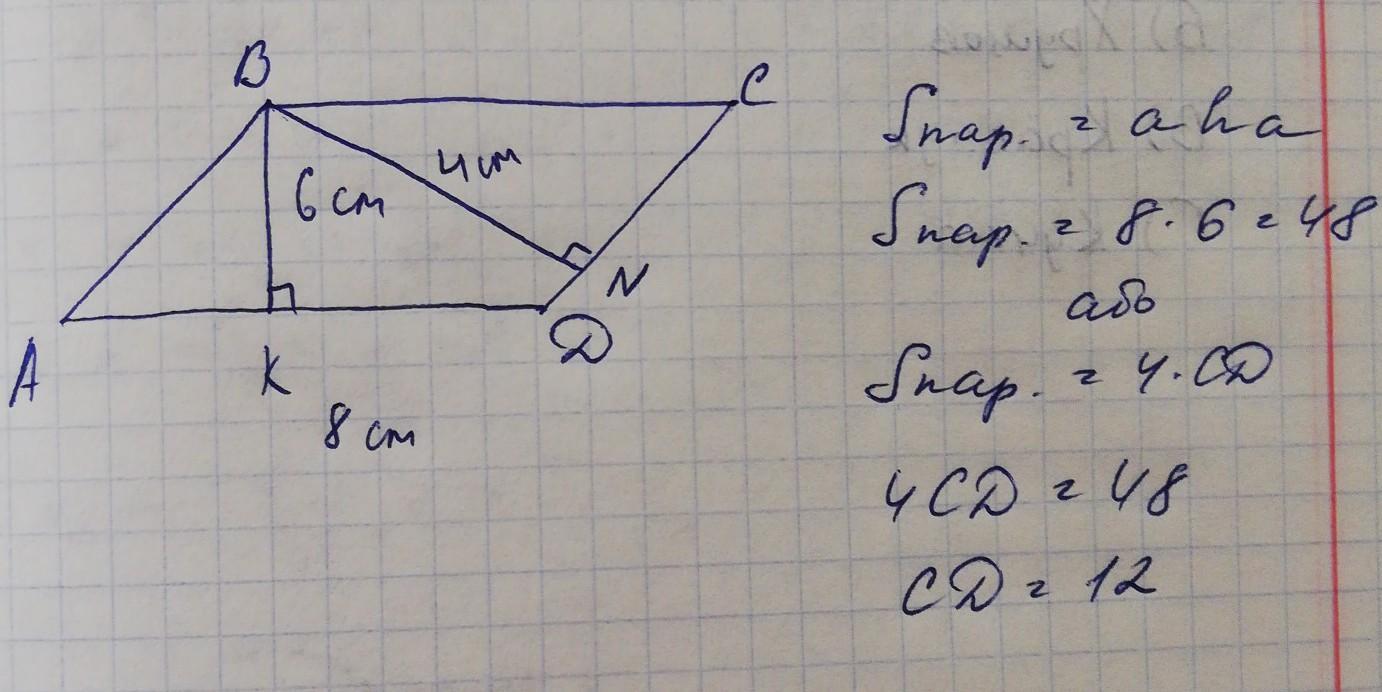 B
C
4 см
6 см
N
A
K
D
8 см
Sпар. = aha
Sпар. = 8·6 = 48
або
Sпар. = 4·CD
4CD = 48
CD = 12